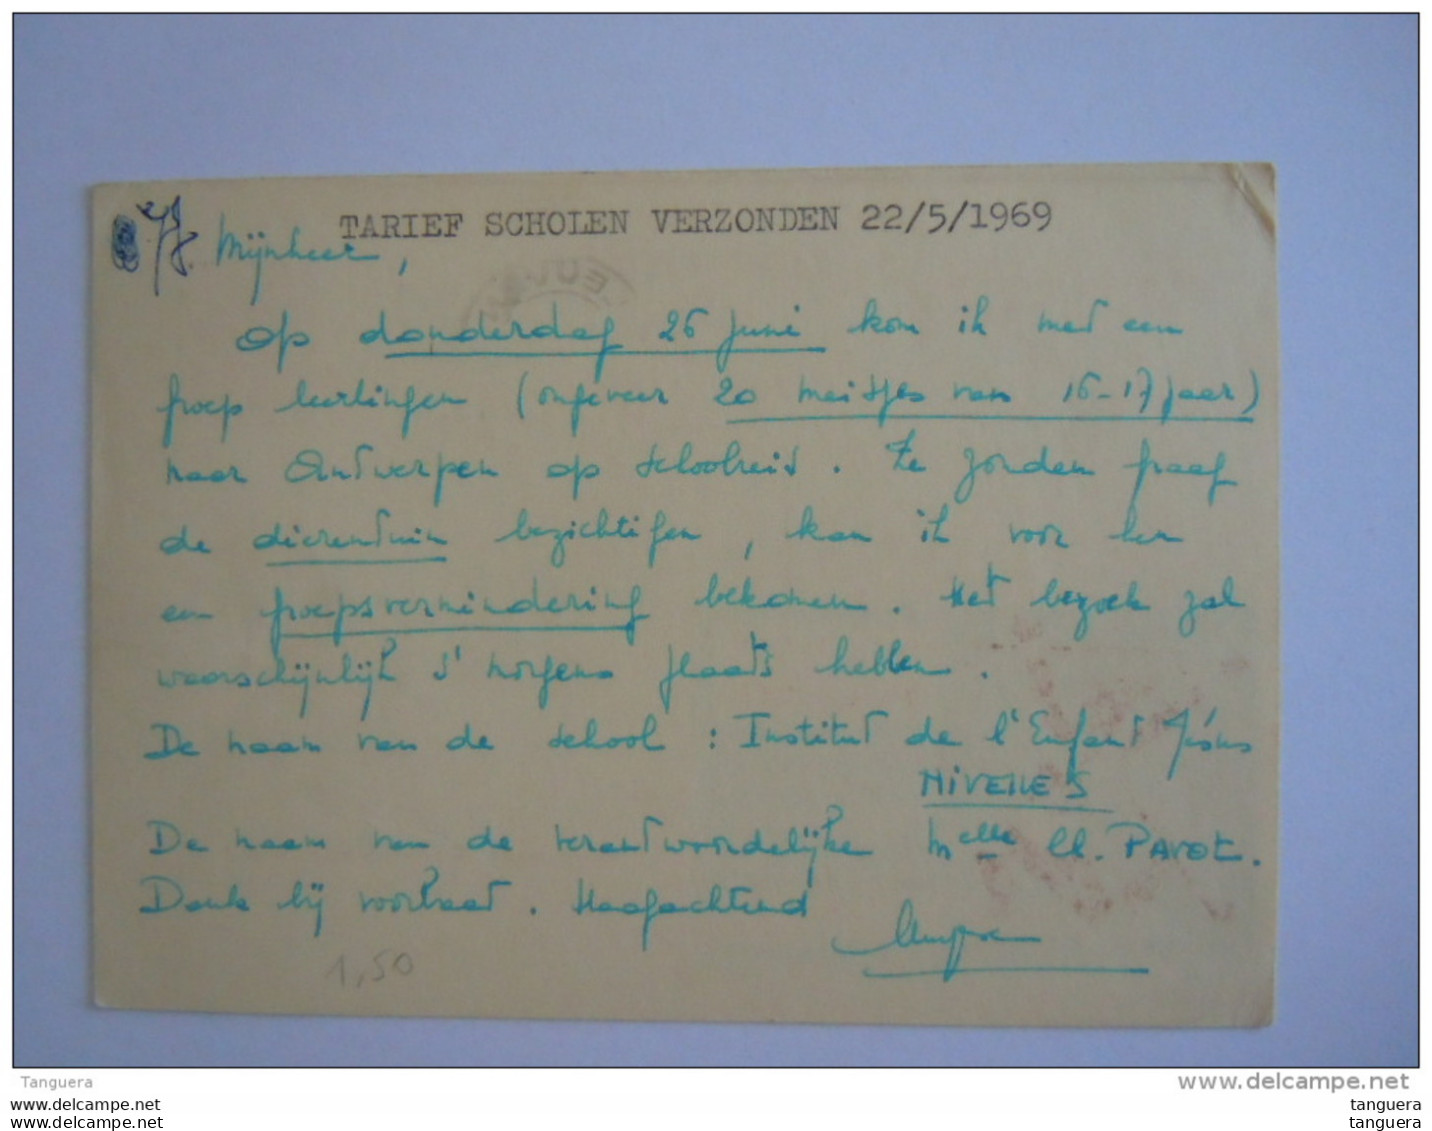 TARIEF SCHOLEN VERZONDEN 22/5/1969
Mijnheer,
Op donderdag 26 juni kom ik met een
groep leerlingen (ongeveer 20 meisjes van 16-17 jaar)
naar Antwerpen op schoolreis. Ze zouden graag
de dierentuin bezichtigen, kan ik voor hen
een groepsvermindering bekomen. Het bezoek zal
waarschijnlijk s' morgens plaats hebben.
De naam van de school : Institut de l'Enfant Jésus
NIVELLES
De naam van de verantwoordelijke Melle Cl. PAVOT.
Dank bij voorbaat. Hoogachtend
1,50
Tanguera
www.delcampe.net
www.delcampe.net
www.delcampe.net
tanguera
tanguera